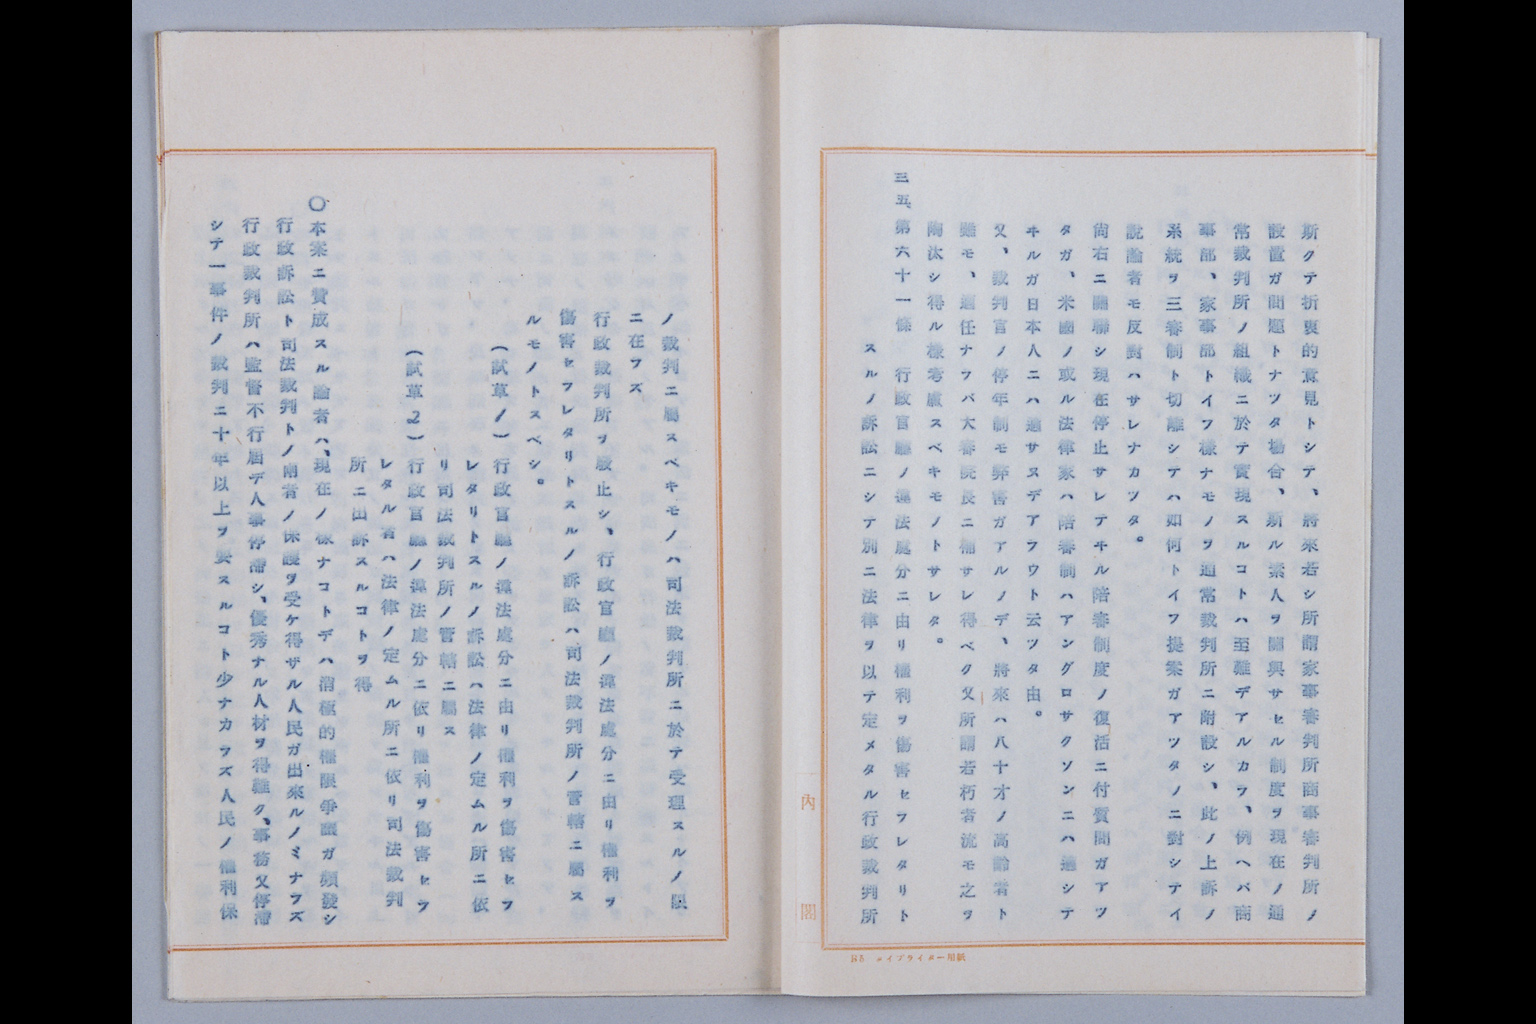 斯クテ折衷的意見トシテ、將來若シ所謂家事審判所商事審判所ノ
設置ガ問題トナツタ場合、斯ル素人ヲ關與サセル制度ヲ現在ノ通
常裁判所ノ組織ニ於テ實現スルコトハ至難デアルカラ、例ヘバ商
事部、家事部トイフ樣ナモノヲ通常裁判所ニ附設シ、此ノ上訴ノ
系統ヲ三審制ト切離シテハ如何トイフ提案ガアツタノニ對シテイ
說論者モ反對ハサレナカツタ。
尙右ニ關聯シ現在停止サレテヰル陪審制度ノ復活ニ付質問ガアツ
タガ、米國ノ或ル法律家ハ陪審制ハアングロサクソンニハ適シテ
ヰルガ日本人ニハ適サヌデアラウト云ツタ由。
又、裁判官ノ停年制モ弊害ガアルノデ、將來ハ八十才ノ高齡者ト
雖モ、適任ナラバ大審院長ニ補サレ得ベク又所謂若朽者流モ之ヲ
陶汰シ得ル樣考慮スベキモノトサレタ。
三五、第六十一條 行政官廳ノ違法處分ニ由リ權利ヲ傷害セラレタリト
スルノ訴訟ニシテ別ニ法律ヲ以テ定メタル行政裁判所
ノ裁判ニ屬スベキモノハ司法裁判所ニ於テ受理スルノ限
ニ在ラズ
行政裁判所ヲ廢止シ、行政官廳ノ違法處分ニ由リ權利ヲ
傷害セラレタリトスルノ訴訟ハ司法裁判所ノ管轄ニ屬ス
ルモノトスベシ。
(試草ノ1)行政官廳ノ違法處分ニ由リ權利ヲ傷害セラ
レタリトスルノ訴訟ハ法律ノ定ムル所ニ依
リ司法裁判所ノ管轄ニ屬ス
(試草2)行政官廳ノ違法處分ニ依リ權利ヲ傷害セラ
レタル者ハ法律ノ定ムル所ニ依リ司法裁判
所ニ出訴スルコトヲ得
○本案ニ贊成スル論者ハ、現在ノ樣ナコトデハ消極的權限爭議ガ頻發シ
行政訴訟ト司法裁判トノ兩者ノ保護ヲ受ケ得ザル人民ガ出來ルノミナラズ
行政裁判所ハ監督不行屆デ人事停滯シ、優秀ナル人材ヲ得難ク、事務又停滯
シテ一事件ノ裁判ニ十年以上ヲ要スルコト少ナカラズ人民ノ權利保
內閣
B5 タイプライター用紙